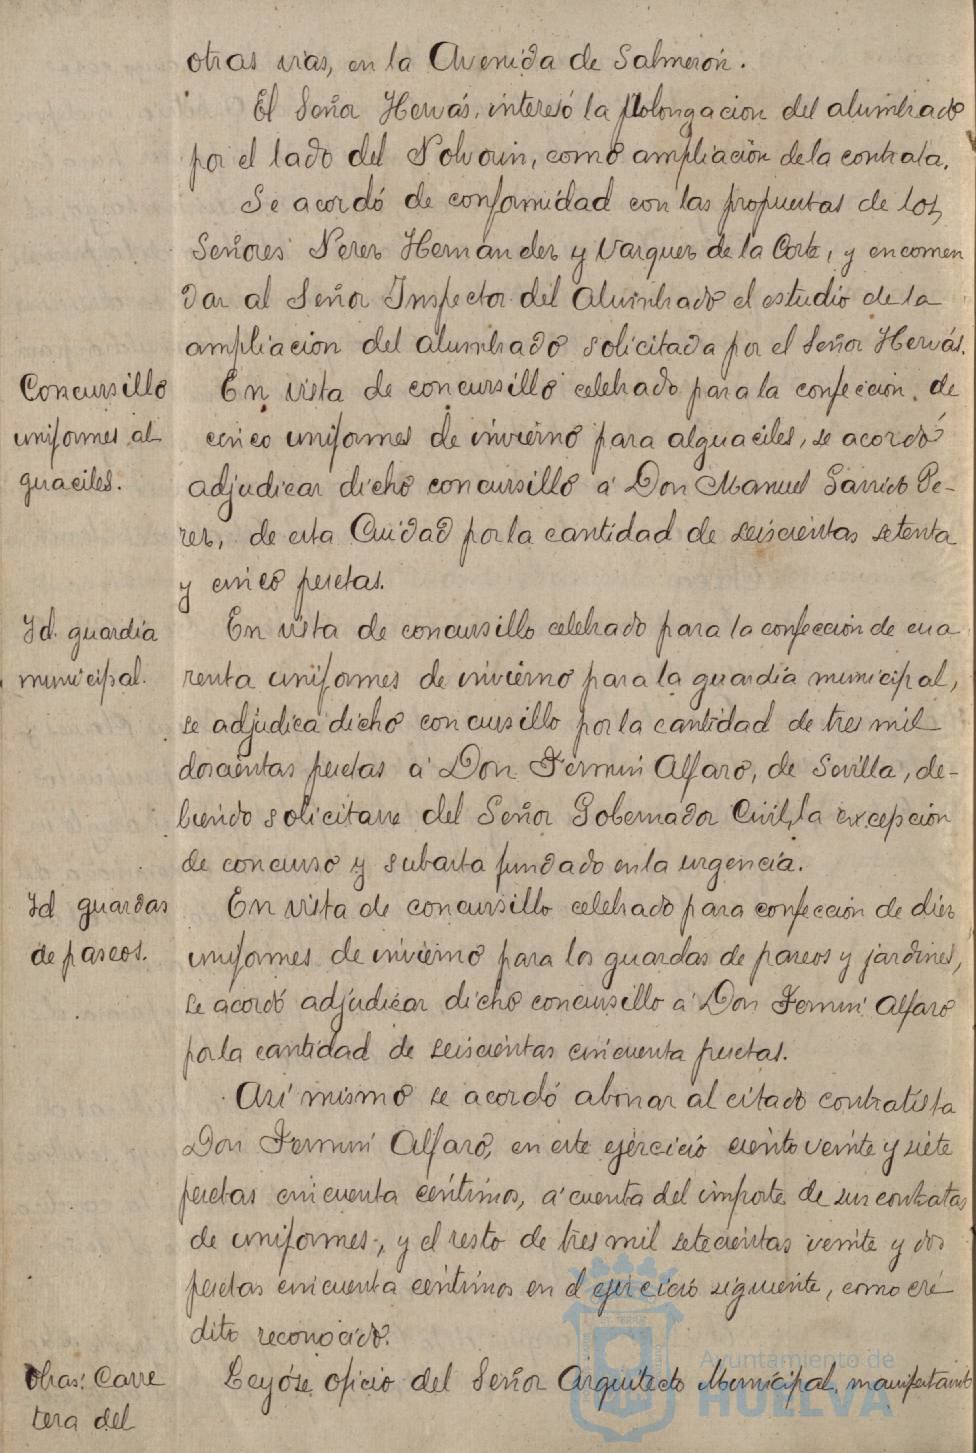 otras vias, en la Avenida de Salmerón.
El Señor Hervás, interesó la prolongacion del alumbrado
por el lado del Polvorin, como ampliación de la contrata.
Se acordó de conformidad con las propuestas de los
Señores Perez Hernandez y Vazquez de la Corte, y encomen
dar al Señor Inspector del Alumbrado el estudio de la
ampliacion del alumbrado solicitada por el Señor Hervás.
Concursillo
uniformes al
guaciles.
En vista de concursillo celebrado para la confeccion de
cinco uniformes de invierno para alguaciles, se acordó
adjudicar dicho concursillo á Don Manuel Garrido Pe-
rez, de esta Ciudad por la cantidad de seiscientas setenta
y cinco pesetas.
Id. guardia
municipal.
En vista de concursillo celebrado para la confección de cua
renta uniformes de invierno para la guardia municipal,
se adjudica dicho concursillo por la cantidad de tres mil
doscientas pesetas á Don Fermin Alfaro, de Sevilla, de-
biendo solicitarse del Señor Gobernador Civil, la excepción
de concurso y subasta fundado en la urgencia.
Id guardas
de paseos.
En vista de concursillo celebrado para confección de diez
uniformes de invierno para los guardas de paseos y jardines,
se acordó adjudicar dicho concursillo á Don Fermin Alfaro
por la cantidad de seiscientas cincuenta pesetas.
Asi mismo se acordó abonar al citado contratista
Don Fermin Alfaro, en este ejercicio ciento veinte y siete
pesetas cincuenta céntimos, á cuenta del importe de sus contratas
de uniformes, y el resto de tres mil setecientas veinte y dos
pesetas cincuenta céntimos en el ejercicio siguiente, como cré
dito reconocido.
Obras: Carre
tera del
Leyóse oficio del Señor Arquitecto Municipal, manifestando
Ayuntamiento de
HUELVA